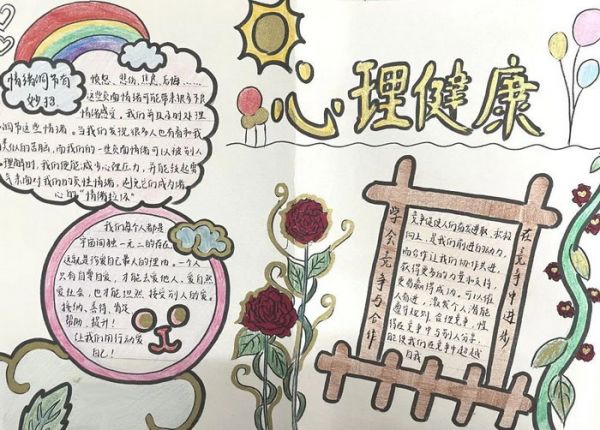 心理健康
情绪调节有
妙招
愤怒、悲伤、焦虑、后悔……
这些负面情绪可能带来很多不良
情绪感受。我们并且及时处理
调节这些情绪。当我们发现很多人也有着和我
类似的苦脑，而我们的一些负面情绪可以被别人
理解时，我们便能减少心理压力，并能鼓起勇
气来面对我们的负性情绪，避免它们成为谱
心的“情绪垃圾”
我们每个人都是
宇宙间独一无二的存在，
这就是珍爱自己善人的理由。一个人
只有自尊自爱，才能去爱他人、爱自然
爱社会，也才能坦然接受别人的爱。
接纳、善待、肯定
帮助、提升！
让我们用行动爱
自己！
学会竞争与合作
竞争促使人们奋发进取、积极
向上，是我们前进的动力，
而合作让我们协作共进，
获得更多的力量和支持，
更易赢得成功。可以催
人奋进，激发个人潜能
遵守规则、合理竞争，懂
得在竞争中与别人分享，
能使我们在竞争中超越
自我
在竞争中进步